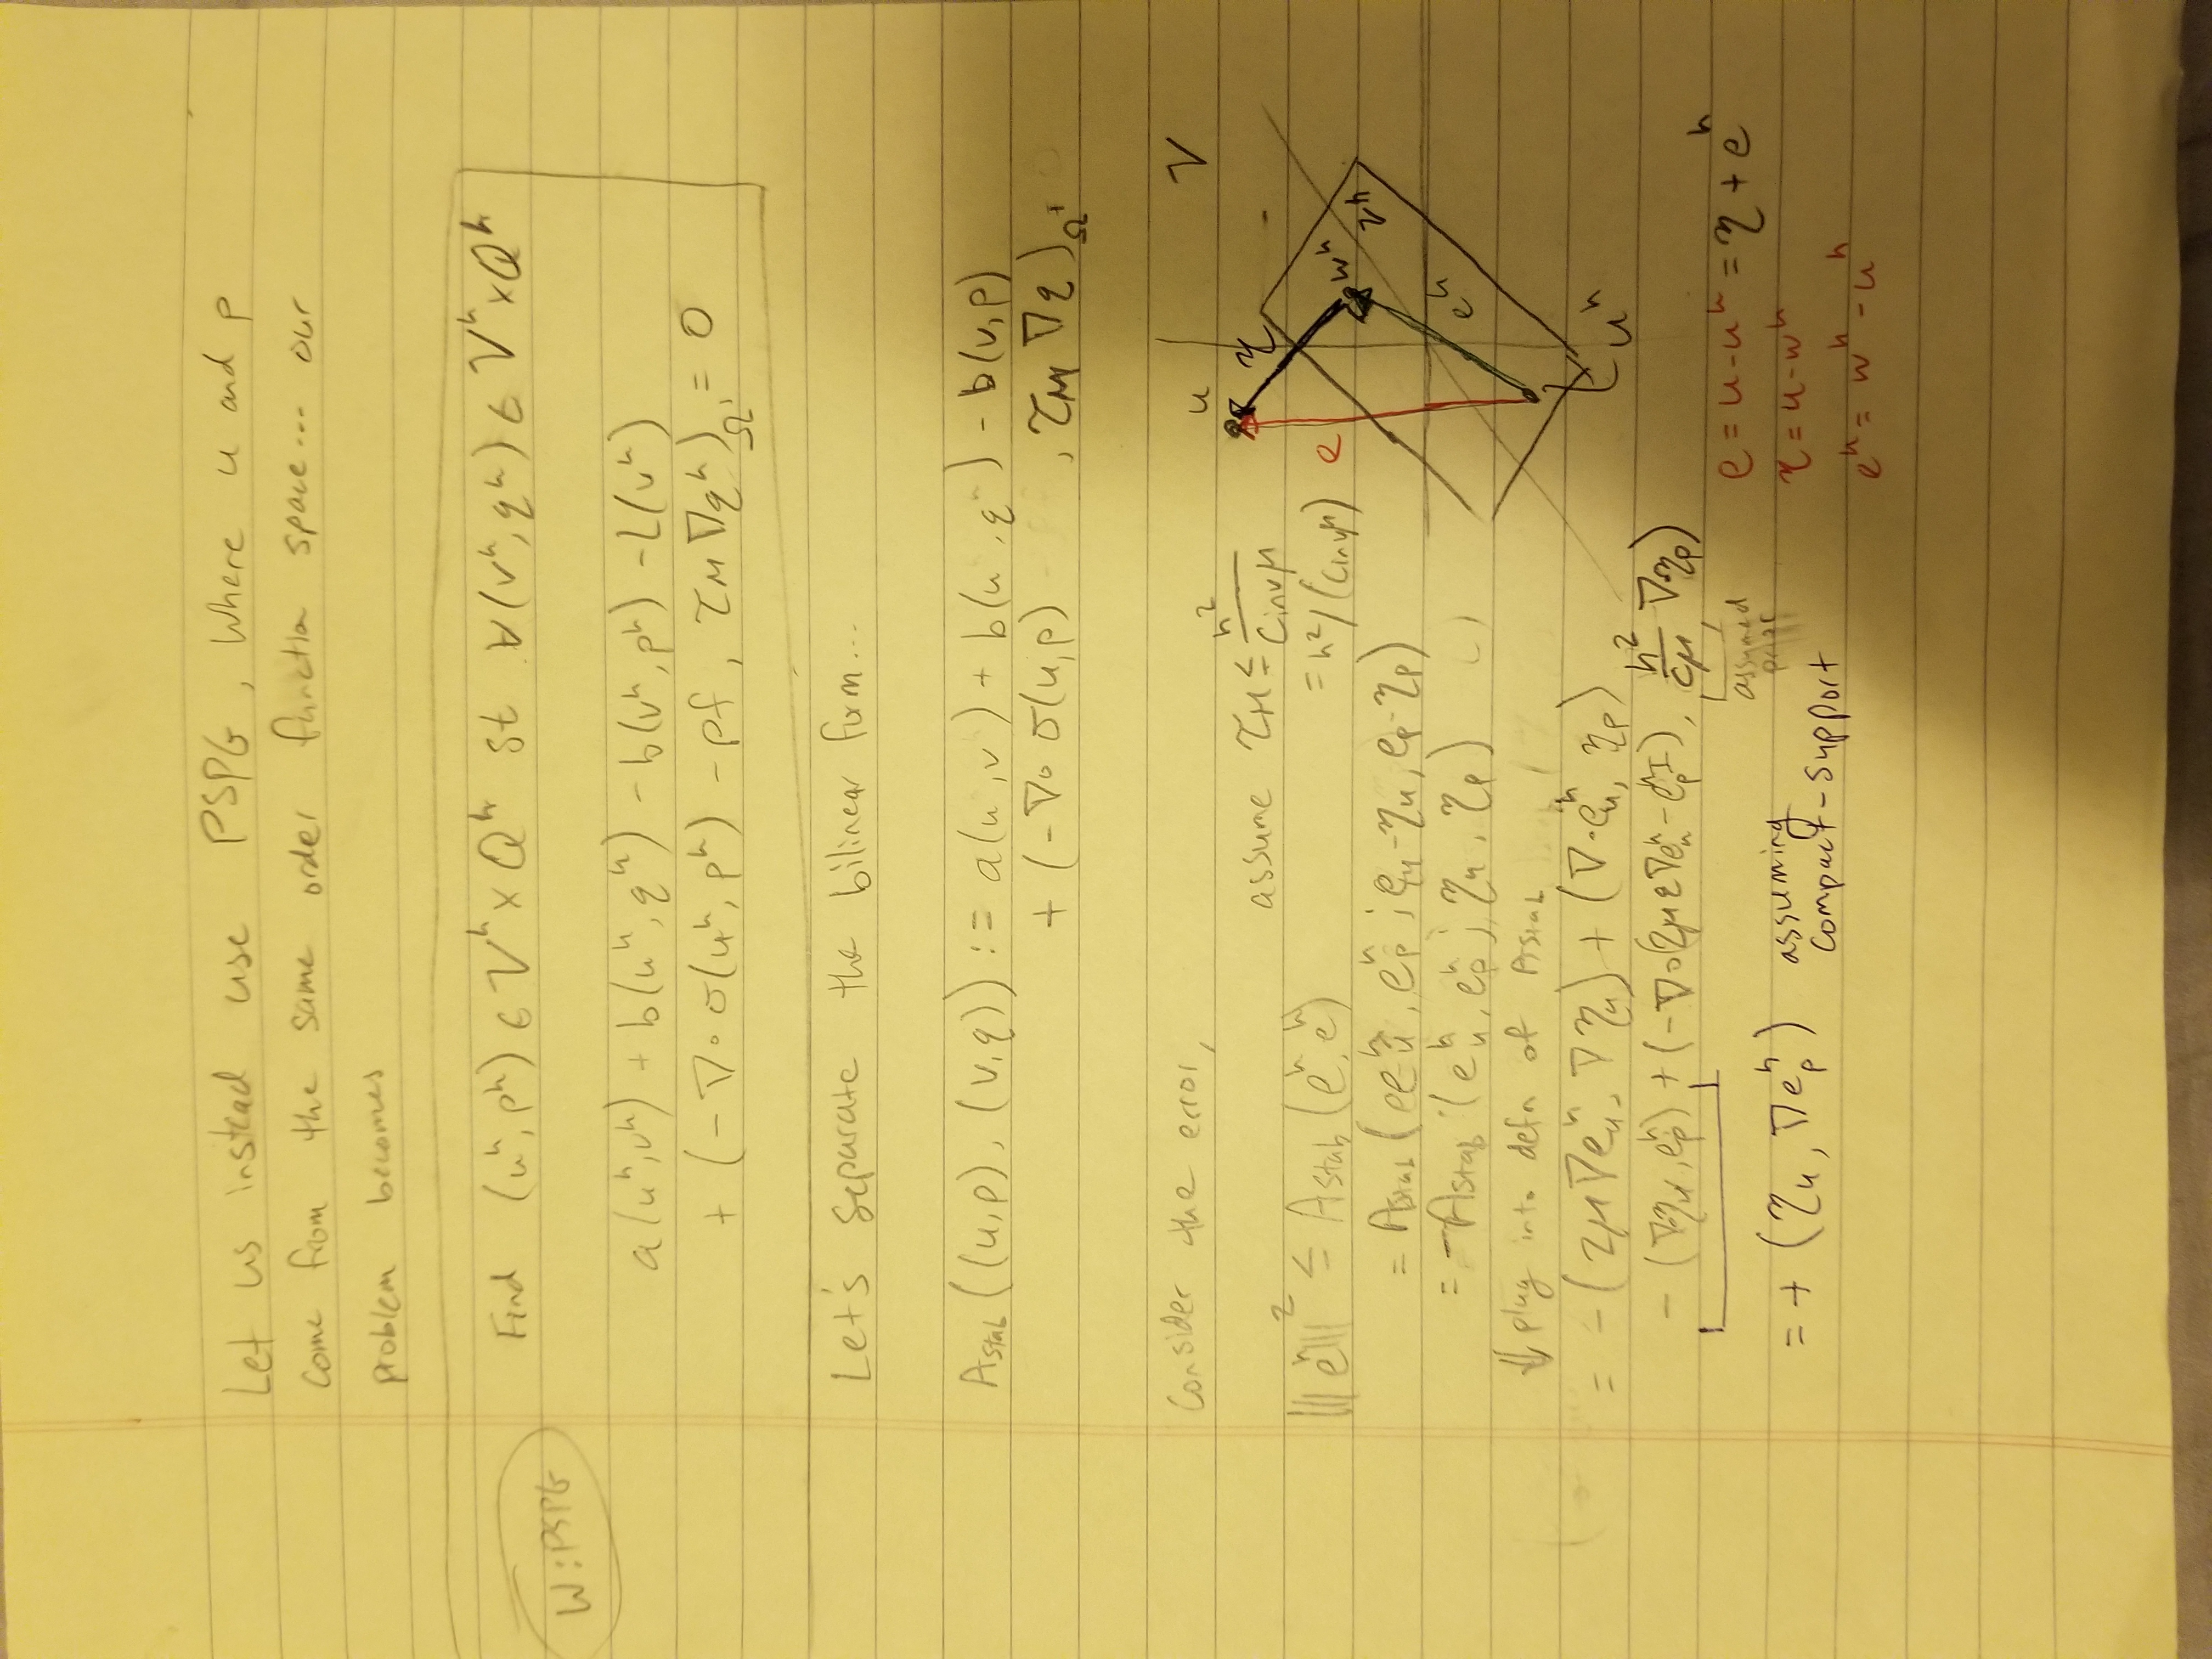 Let us instead use PSPG, Where u and p
come from the same order function space... our
problem becomes
W:PSPG
Find (u^h, p^h) ∈ V^h × Q^h st ∀(v^h, q^h) ∈ V^h × Q^h
a(u^h, v^h) + b(u^h, q^h) - b(v^h, p^h) - L(v^h)
+ (-∇∘σ(u^h, p^h) - ρf, τ_M ∇q^h)_Ω' = 0
Let's separate the bilinear form...
A_stab((u,p), (v,q)) := a(u,v) + b(u,q) - b(v,p)
+ (-∇∘σ(u,p), τ_M ∇q)_Ω'
Consider the error,
assume τ_M ≤ h²/C_inv μ
= h²/(C_inv μ)
|||e^h|||² ≤ A_stab(e^h, e^h)
= A_stab(e^h_u, e^h_p; e_u - η_u, e_p - η_p)
= -A_stab(e^h_u, e^h_p; η_u, η_p)
⇓ plug into defn of A_stab
= -(2μ∇e^h_u, ∇η_u) + (∇·e^h_u, η_p)
- (∇·η_u, e^h_p) + (-∇∘(2με∇e^h_u - e^h_p I), h²/cμ ∇·η_p)
assumed
prior
= + (η_u, ∇e^h_p) assuming
compact-support
V
u
η
e
w^h
V^h
e^h
u^h
e = u - u^h = η + e^h
η = u - w^h
e^h = w^h - u^h